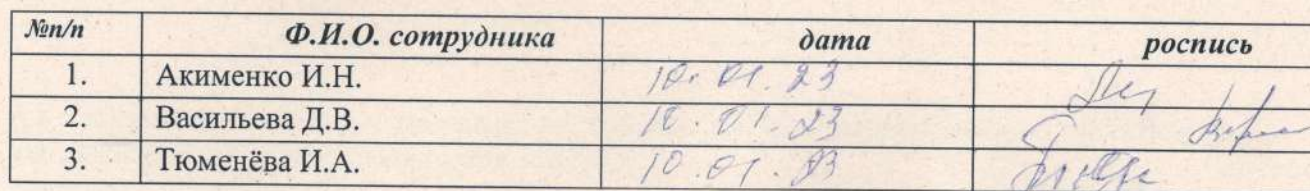 №п/п Ф.И.О. сотрудника дата роспись
1. Акименко И.Н. 10.01.23
2. Васильева Д.В. 10.01.23
3. Тюменёва И.А. 10.01.23